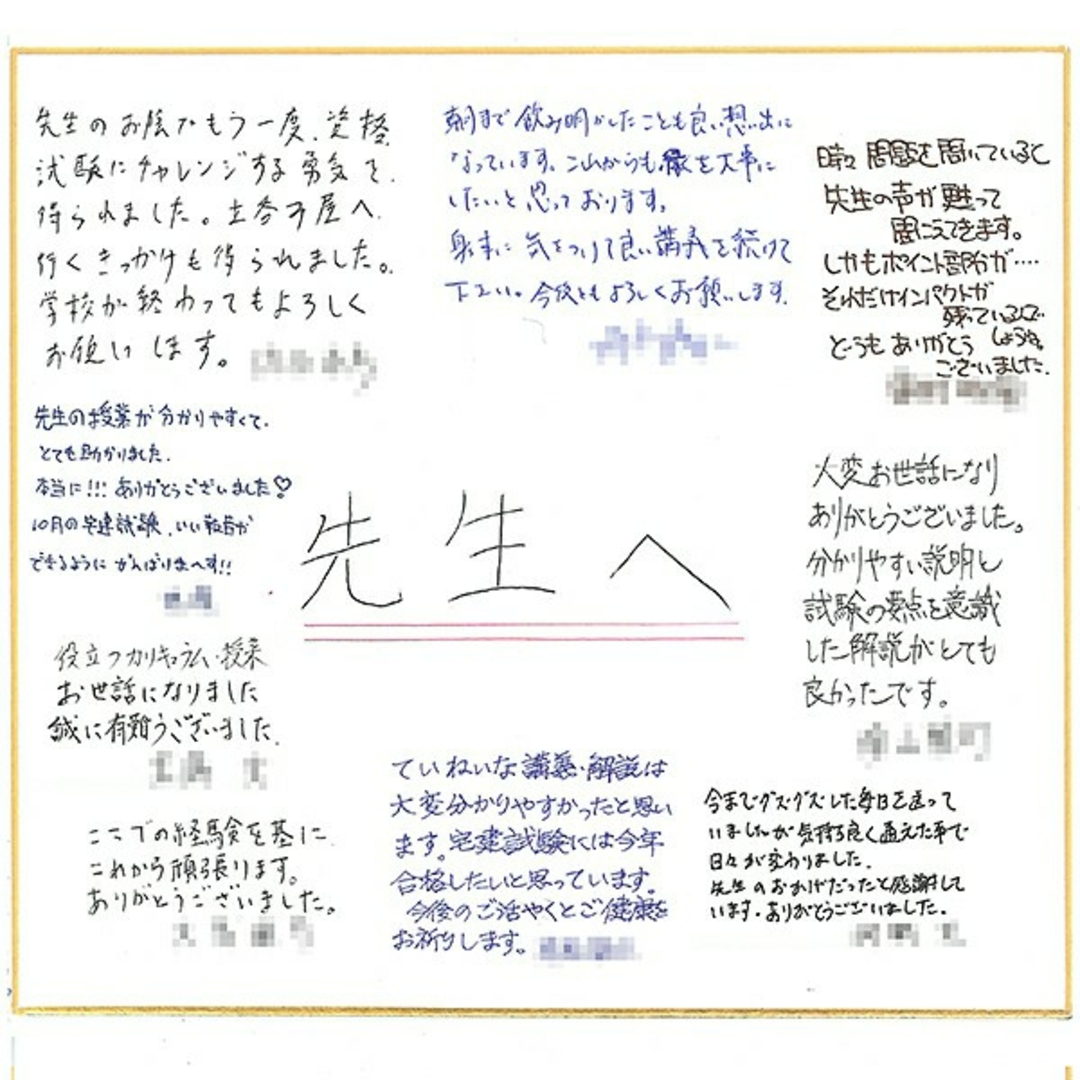 先生のお陰でもう一度、資格
試験にチャレンジする勇気を
得られました。土香子屋へ
行くきっかけも得られました。
学校が終わってもよろしく
お願いします。
朝まで飲み明かしたことも良い想い出に
なっています。これからも縁を大事に
したいと思っております。
身体に気をつけて良い講義を続けて
下さい。今後ともよろしくお願いします。
時々問題を解いていると
先生の声が甦って
聞こえてきます。
しかもポイント部分が‥‥
それだけインパクトが
残っているんで
しょうね。
どうもありがとう
ございました。
先生の授業が分かりやすくて、
とても助かりました。
本当に!!! ありがとうございました♡
10月の宅建試験、いい報告が
できるように がんばりまーす!!
先生へ
大変お世話になり
ありがとうございました。
分かりやすい説明と
試験の要点を意識
した解説がとても
良かったです。
役立つカリキュラム・授業
お世話になりました
誠に有難うございました。
ここでの経験を基に
これから頑張ります。
ありがとうございました。
ていねいな講義・解説は
大変分かりやすかったと思い
ます。宅建試験には今年
合格したいと思っています。
今後のご活やくとご健康を
お祈りします。
今までグズグズした毎日を送って
いましたが気持ち良く通えた事で
日々が変わりました。
先生のおかげだったと感謝して
います。ありがとうございました。